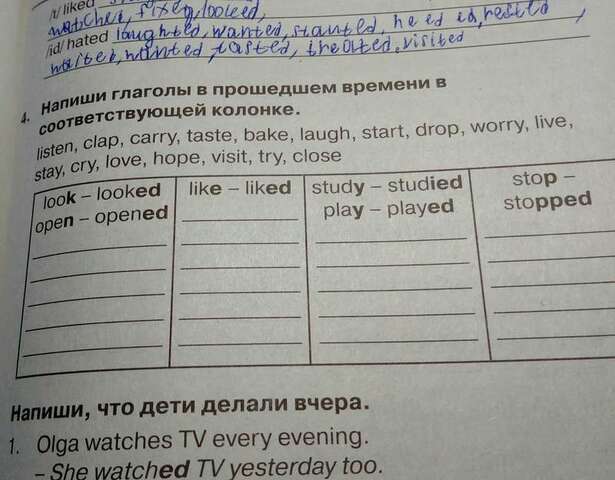 /t/ liked
watched, fixed, looked,
/id/ hated wanted, started, needed, rested,
visited
4. Напиши глаголы в прошедшем времени в
соответствующей колонке.
listen, clap, carry, taste, bake, laugh, start, drop, worry, live,
stay, cry, love, hope, visit, try, close
look – looked like – liked study – studied stop –
open – opened play – played stopped
Напиши, что дети делали вчера.
1. Olga watches TV every evening.
– She watched TV yesterday too.